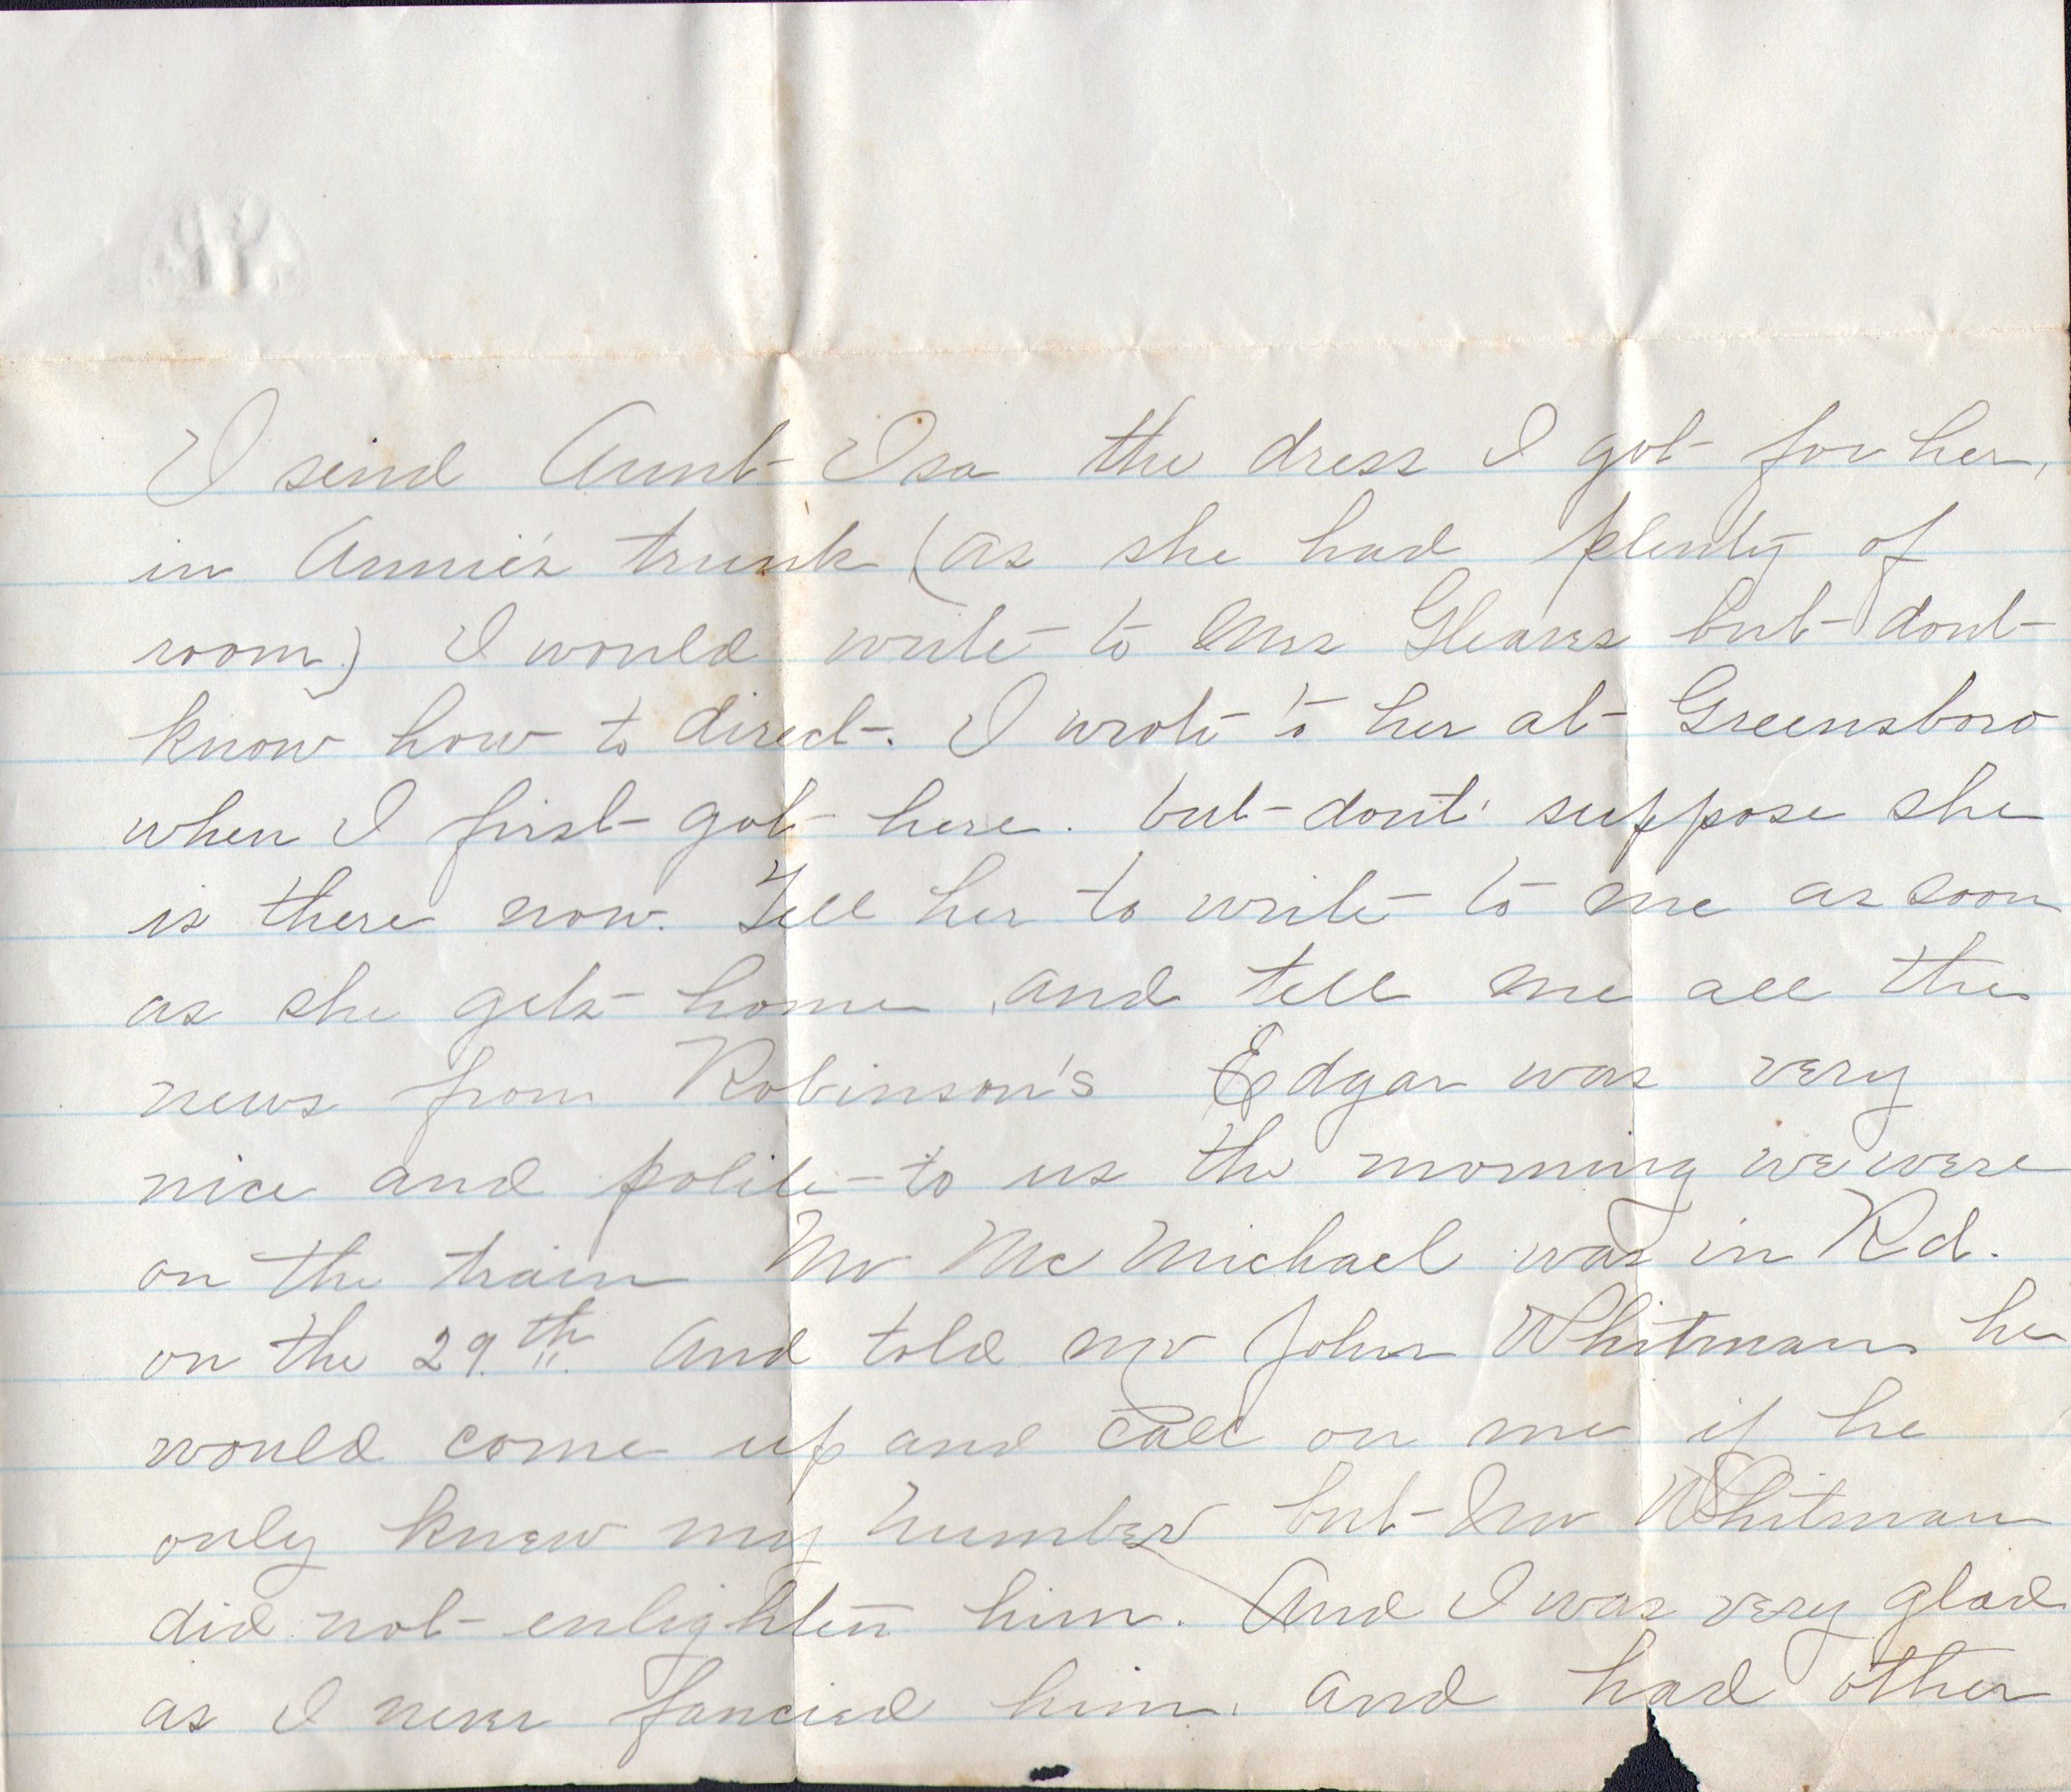 I send Aunt Isa the dress I got for her,
in Annie's trunk (as she had plenty of
room.) I would write to Mrs Gleaves but dont
know how to direct. I wrote to her at Greensboro
when I first got here. but dont suppose she
is there now. Tell her to write to me as soon
as she gets home and tell me all the
news from Robinson's Edgar was very
nice and polite to us the morning we were
on the train Mr McMichael was in Rd.
on the 29.th And told Mr John Whitman he
would come up and call on me if he
only knew my number but Mr Whitman
did not enlighten him. And I was very glad
as I never fancied him. and had other